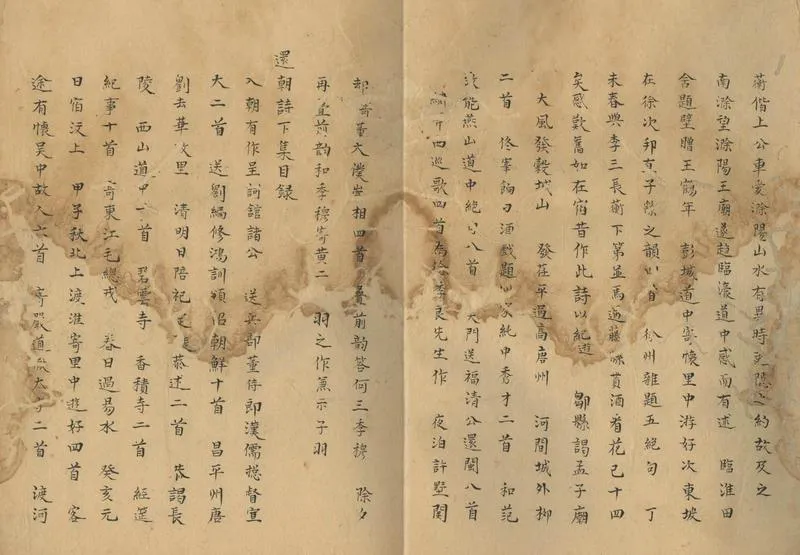 蘅偕上公車愛滁陽山水有異時乞隱之約故及之
南滁望滁陽王廟還趋臨濠道中感而有述 臨淮田
舍題壁贈王鶴年 彭城道中寄懷里中游好次東坡
在徐次邦直子繇之韻 徐州雜題五絶句 丁
未春與李三長蘅下第並馬過藤 貰酒看花已十四
矣感歎舊如在宿昔作此詩以紀遊 鄒縣謁孟子廟
大風發穀城山 發茌平過高唐州 河間城外柳
二首 刁酒戲題 純中秀才二首 和范
燕山道中絶句八首 大門送福清公還閩八首
四巡歌四首為 良先生作 夜泊許墅關
却寄董大 相四首 疊前韵答何三季穆 除夕
再 前韵和季穆寄黃二 羽之作兼示子羽
還朝詩下集目録
入朝有作呈詞館諸公 送兵部董侍郎漢儒總督宣
大二首 送劉編修鴻訓頒詔朝鮮十首 昌平州唐
劉去華故里 清明日陪祀 恭述二首 恭謁長
陵 西山道中一首 碧雲寺 香積寺二首 經筵
紀事十首 寄東江毛總戎 春日過易水 癸亥元
日宿汶上 甲子秋北上渡淮寄里中遊好四首 客
途有懷吳中故人六首 寄嚴道 太守二首 渡河